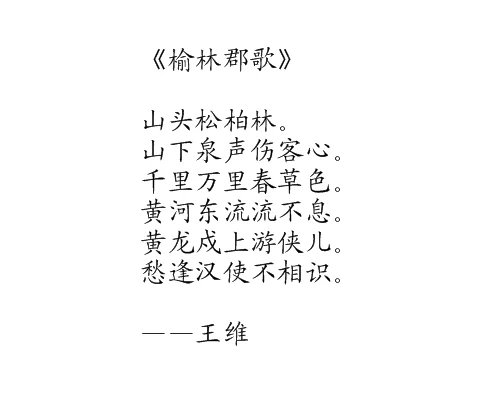 《榆林郡歌》
山头松柏林。
山下泉声伤客心。
千里万里春草色。
黄河东流流不息。
黄龙戍上游侠儿。
愁逢汉使不相识。
——王维